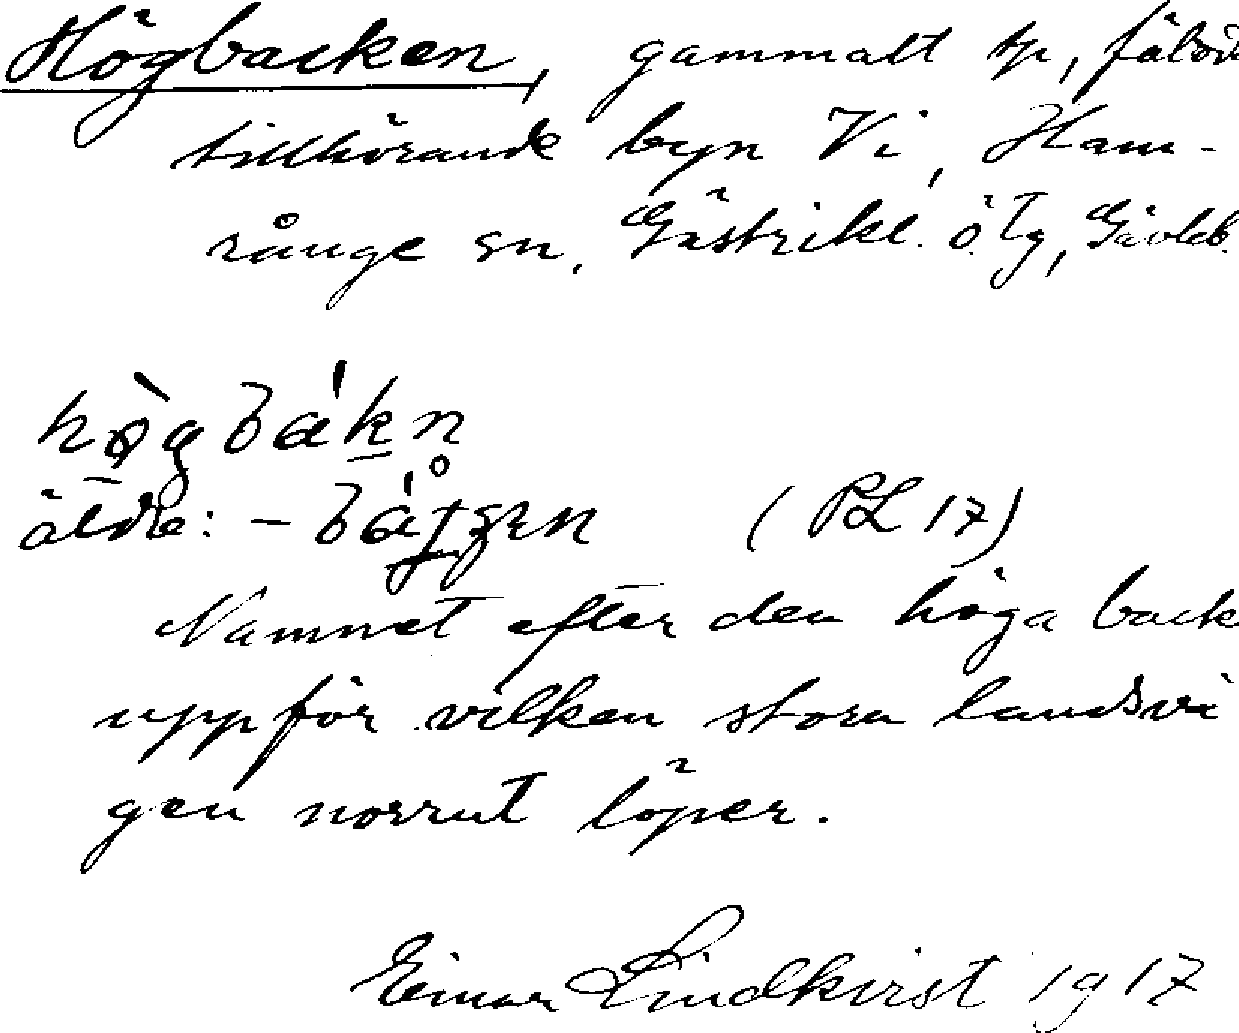 Högbacken, gammalt tp,
tillhörande byn Vi, Ham-
rånge sn, Gästrikl. ö. Tg, Gävleb.
hògbákn
äldre: - (PL 17)
Namnet efter den höga back
uppför vilken stora landsvä
gen norrut löper.
Einar Lindkvist 1917